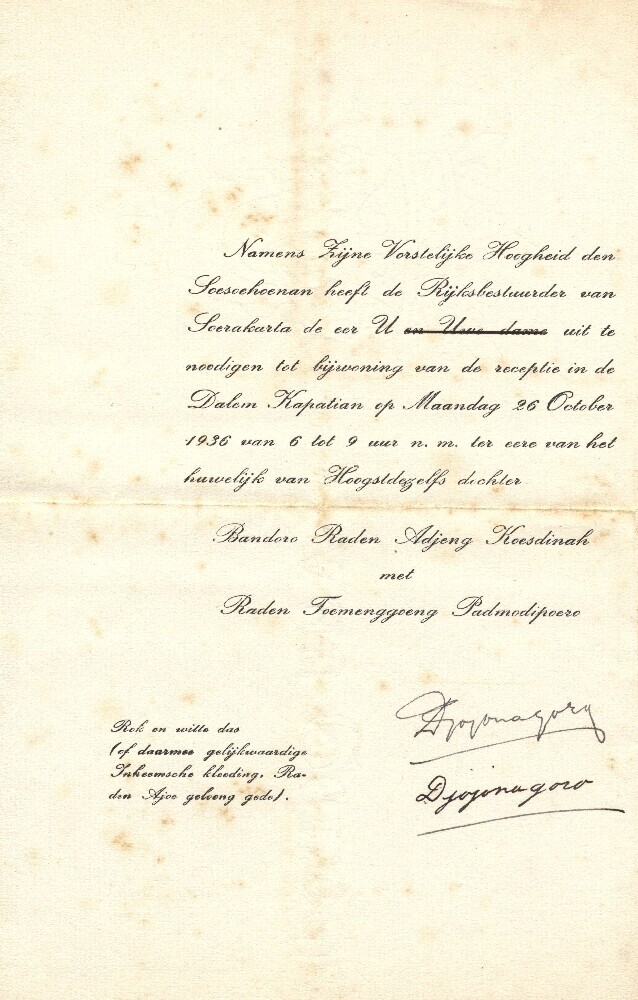 Namens Zijne Vorstelijke Hoogheid den
Soesoehoenan heeft de Rijksbestuurder van
Soerakarta de eer U en Uwe dame uit te
noodigen tot bijwoning van de receptie in de
Dalem Kapatian op Maandag 26 October
1936 van 6 tot 9 uur n. m. ter eere van het
huwelijk van Hoogstdezelfs dochter
Bandoro Raden Adjeng Koesdinah
met
Raden Toemenggoeng Padmodipoero
Rok en witte das
(of daarmee gelijkwaardige
Inheemsche kleeding. Ra-
den Ajoe geloeng gede).
Djojonagoro
Djojonagoro